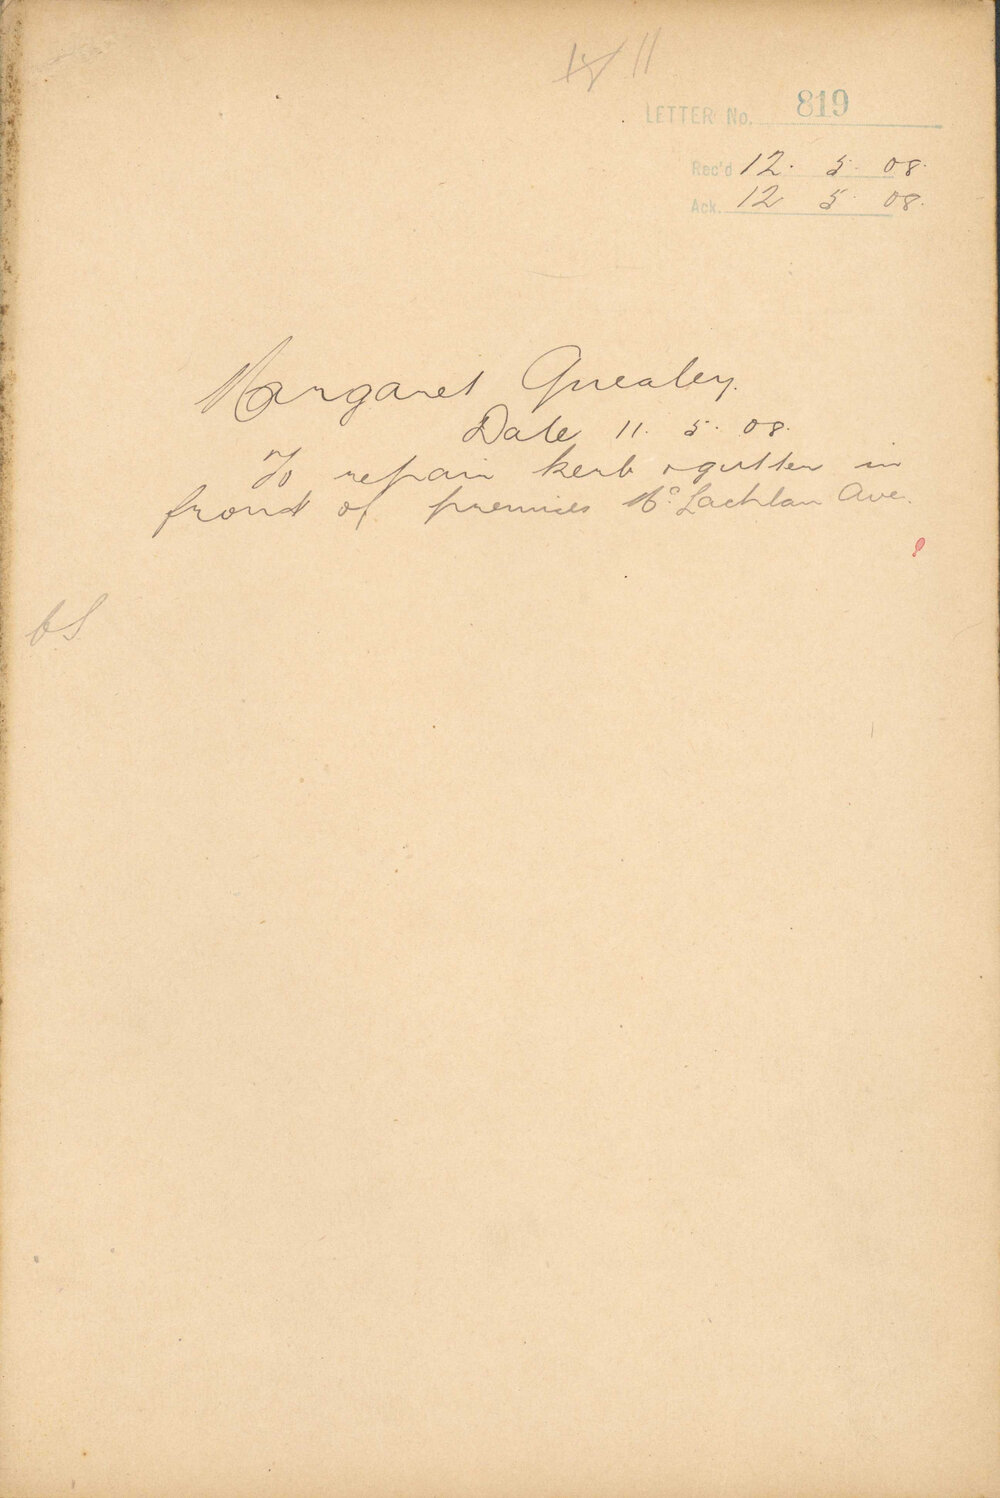 11
LETTER No. 819
Rec'd 12. 5. 08.
Ack. 12 5. 08.
Margaret Quealey.
Date 11. 5. 08.
To repair kerb & gutter in
front of premises Mc Lachlan Ave.